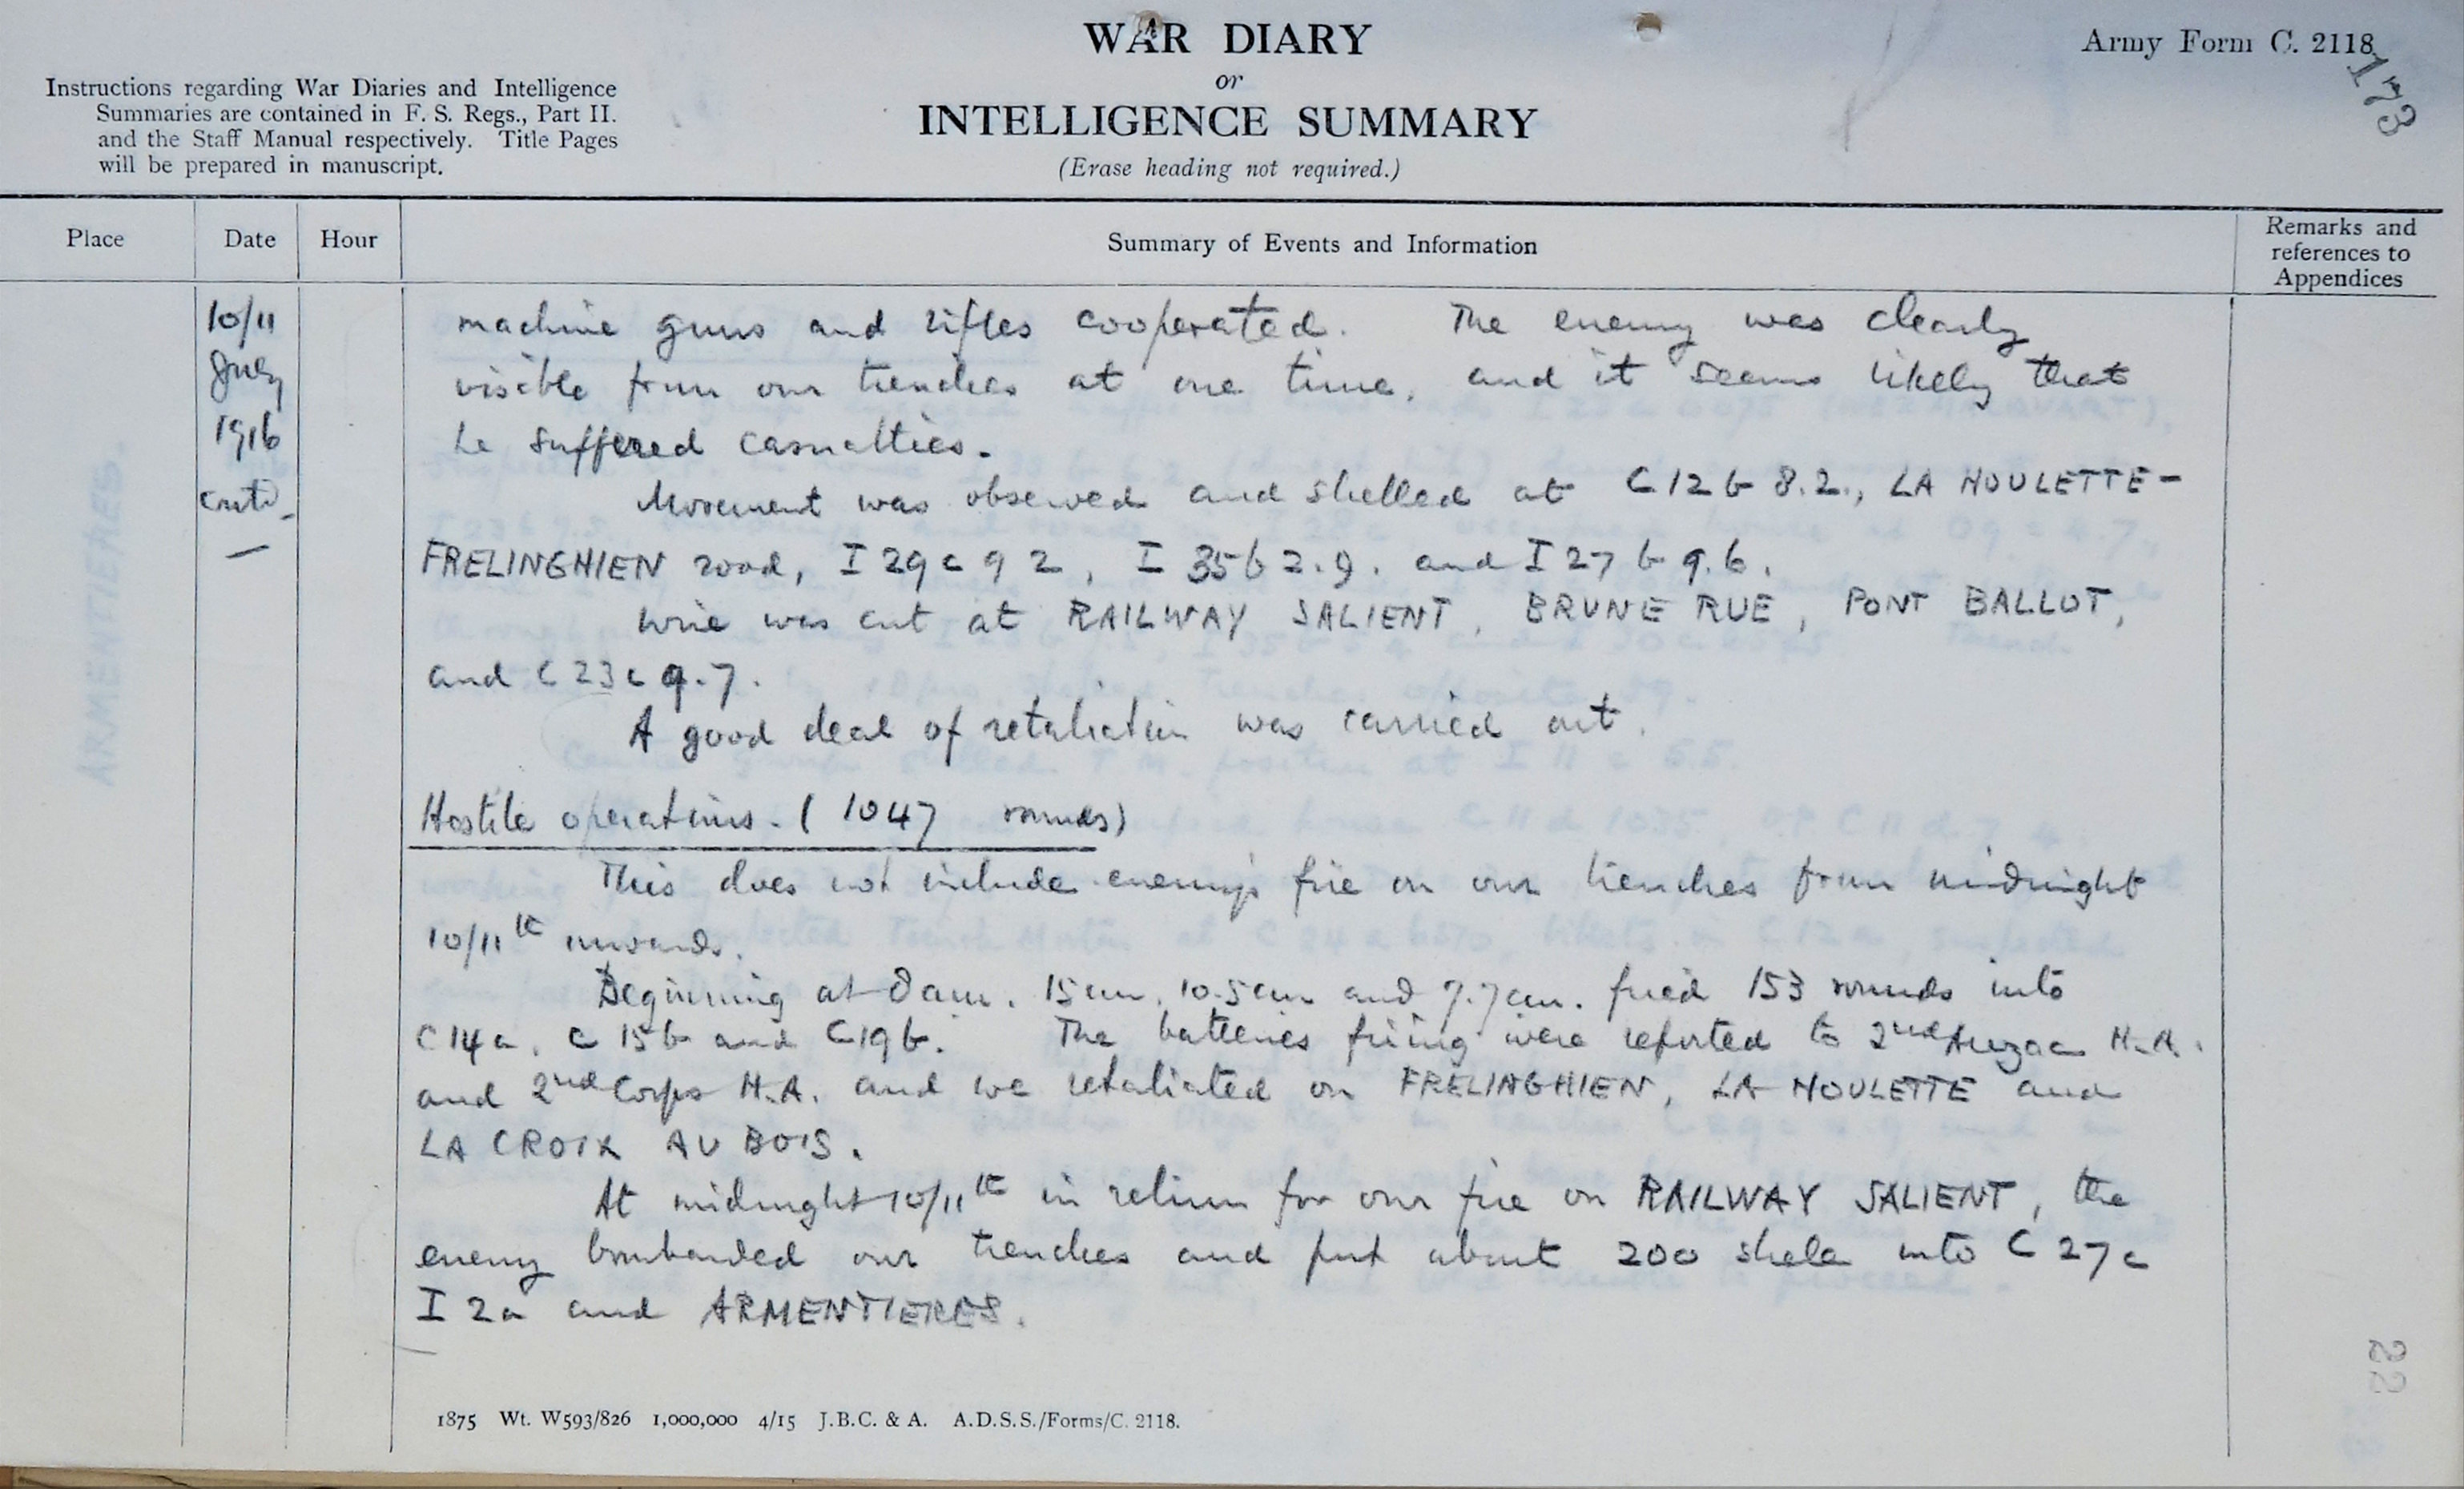 WAR DIARY
or
INTELLIGENCE SUMMARY
(Erase heading not required.)
Army Form C. 2118
173
Instructions regarding War Diaries and Intelligence
Summaries are contained in F. S. Regs., Part II.
and the Staff Manual respectively. Title Pages
will be prepared in manuscript.
Place Date Hour Summary of Events and Information Remarks and
references to
Appendices
10/11
July
1916
contd.
—
machine guns and rifles cooperated. The enemy was clearly
visible from our trenches at one time, and it seems likely that
he suffered casualties.
Movement was observed and shelled at C 12 b 8.2., LA HOULETTE-
FRELINGHIEN road, I 29 c 9 2, I 35 b 2.9. and I 27 b 9.6.
Wire was cut at RAILWAY SALIENT, BRUNE RUE, PONT BALLOT,
and C 23 c 9.7.
A good deal of retaliation was carried out.
Hostile operations. (1047 rounds)
This does not include enemy's fire on our trenches from midnight
10/11th onwards.
Beginning at 8 am. 15cm, 10.5cm and 7.7cm. fired 153 rounds into
C 14 a. C 15 b and C 19 b. The batteries firing were reported to 2nd Anzac H.A.
and 2nd Corps H.A. and we retaliated on FRELINGHIEN, LA HOULETTE and
LA CROIX AU BOIS.
At midnight 10/11th in return for our fire on RAILWAY SALIENT, the
enemy bombarded our trenches and put about 200 shells into C 27 c
I 2a and ARMENTIERES.
ARMENTIERES.
22
1875 Wt. W593/826 1,000,000 4/15 J.B.C. & A. A.D.S.S./Forms/C. 2118.